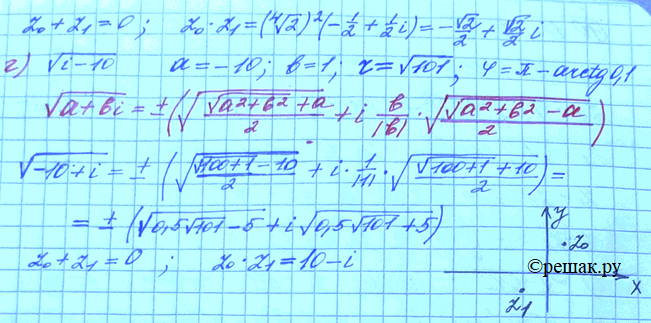 z₀ + z₁ = 0 ; z₀ · z₁ = (⁴√2)² (-1/2 + 1/2 i) = -√2/2 + √2/2 i
г) √(i-10) a = -10; b = 1; r = √101; φ = π - arctg 0,1
√(a+bi) = ± (√((√(a²+b²) + a)/2) + i b/|b| · √((√(a²+b²) - a)/2))
√(-10+i) = ± (√((√(100+1) - 10)/2) + i · 1/|1| · √((√(100+1) + 10)/2)) =
= ± (√(0,5√101 - 5) + i √(0,5√101 + 5))
z₀ + z₁ = 0 ; z₀ · z₁ = 10 - i
y
z₀
©решак.ру
x
z₁